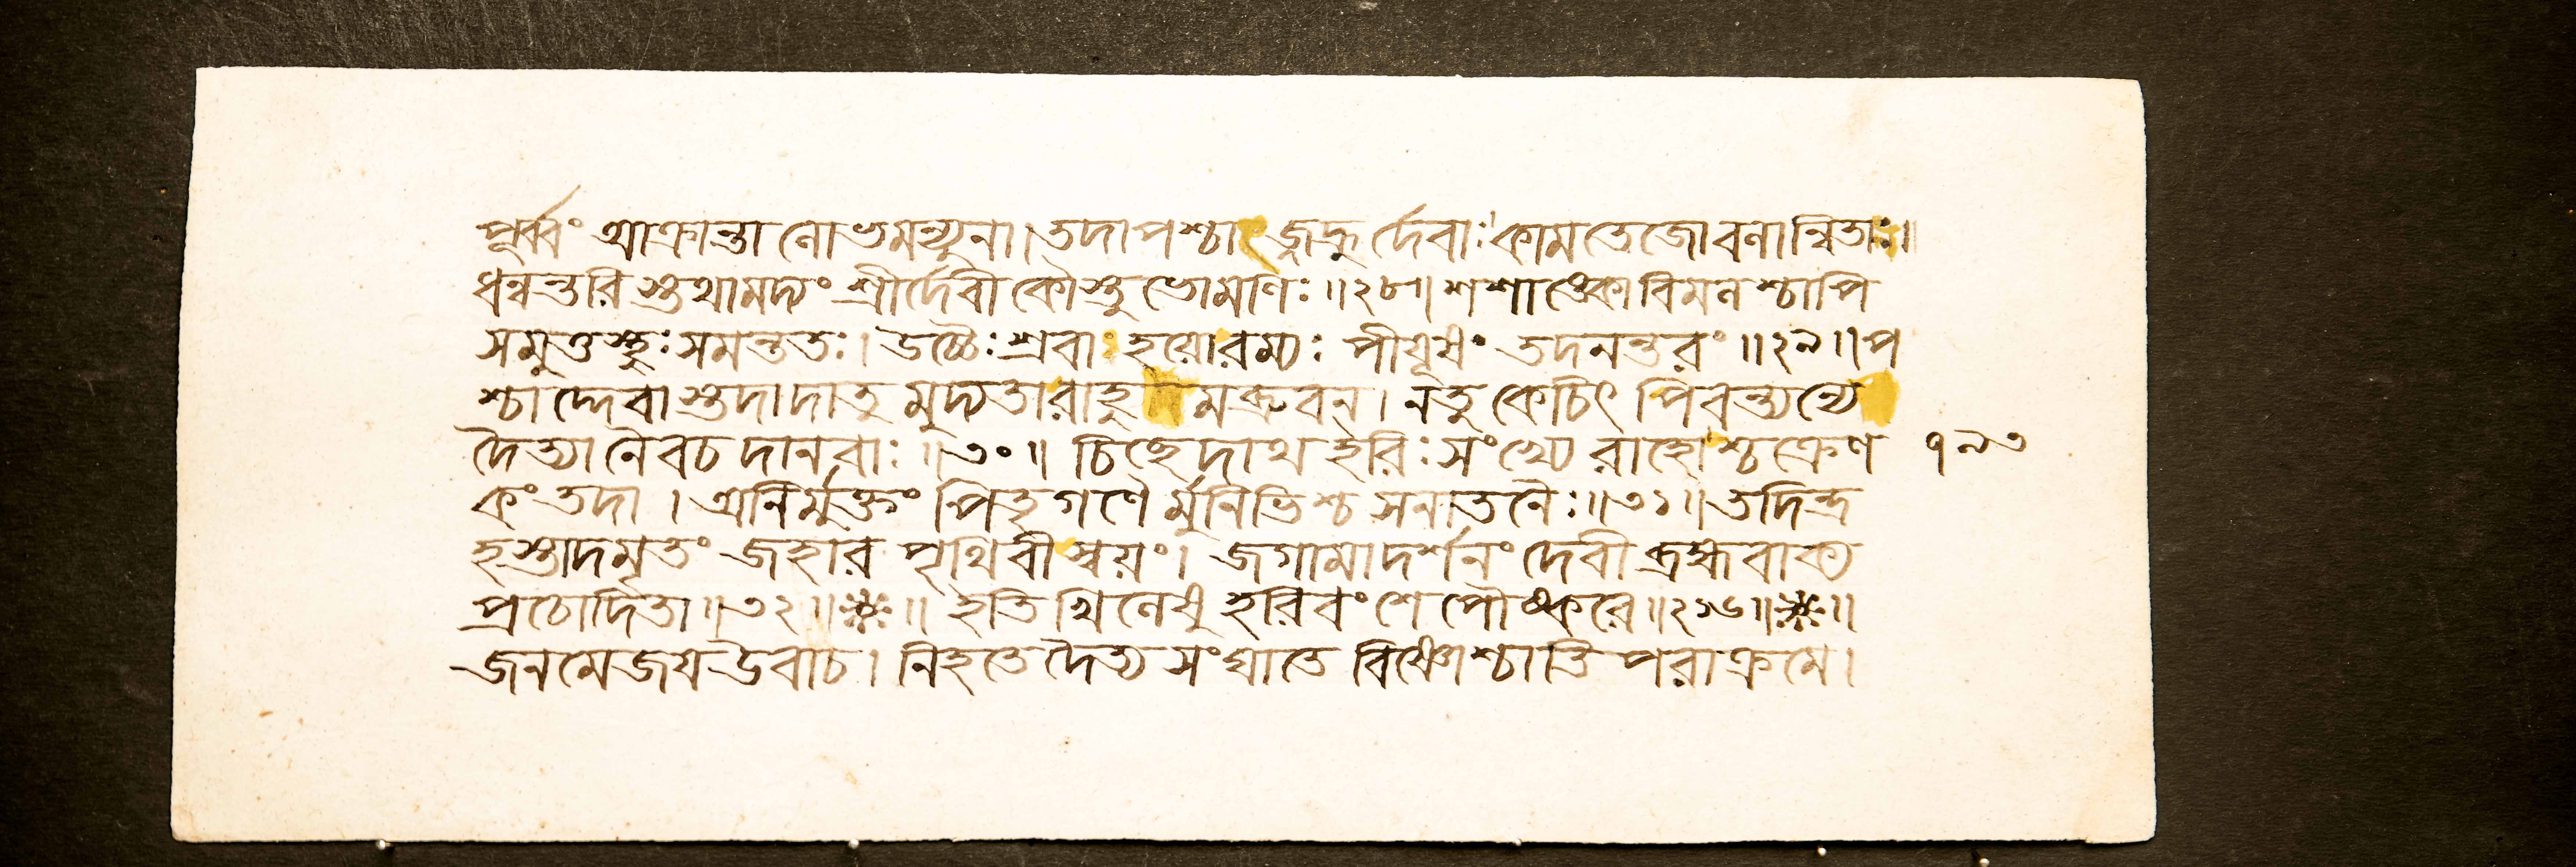 পূর্ব্বং আক্রান্তা লোভমন্যুনা। তদা পশ্চাৎ জহ্রুর্দেবাঃ কামতেজোবলান্বিতাঃ॥
ধন্বন্তরিস্তথামদ্যং শ্রীর্দেবী কৌস্তুভোমণিঃ॥২৮॥ শশাঙ্কোবিমলশ্চাপি
সমুত্তস্থুঃ সমন্ততঃ। উচ্চৈঃশ্রবাঃ হয়োরম্যঃ পীযূষং তদনন্তরং॥২৯॥ প
শ্চাদ্দেবাস্তদাদাতুমুদ্যতারাহুমব্রুবন। নতু কেচিৎ পিবন্ত্যন্যে
দৈত্যানৈবচ দানবাঃ॥৩০॥ চিচ্ছেদাথ হরিঃ সংখ্যে রাহোশ্চক্রেণ ১৯৩
কং তদা। অনির্মুক্তং পিতৃগণৈর্মুনিভিশ্চ সনাতনৈঃ॥৩১॥ তদিন্দ্র
হস্তাদমৃতং জহার পৃথিবী স্বয়ং। জগামাদর্শনং দেবী ব্রহ্মবাক্য
প্রচোদিতা॥৩২॥ ॥ ইতি খিলেষু হরিবংশে পৌষ্করে॥২১৬॥ ॥
জনমেজয উবাচ। নিহতে দৈত্যসংঘাতে বিষ্ণোশ্চাতি পরাক্রমে।